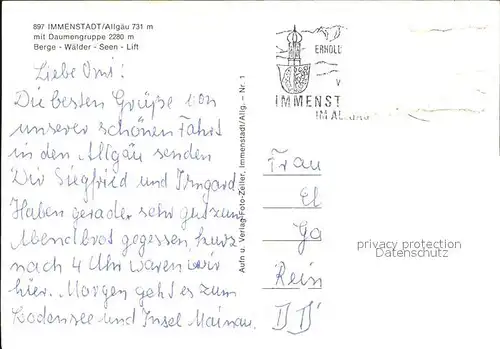 897 IMMENSTADT/Allgäu 731 m
mit Daumengruppe 2280 m
Berge - Wälder - Seen - Lift
Liebe Omi!
Die besten Grüße von
unserer schönen Fahrt
in den Allgäu senden
Dir Siegfried und Irmgard
Haben gerade sehr gut zum
Abendbrot gegessen, kurz
nach 4 Uhr waren wir
hier. Morgen geht es zum
Bodensee und Insel Mainau.
Aufn u. Verlag Foto-Zeller, Immenstadt/Allg. - Nr. 1
ERHOL
V
IMMENST
IM ALLGÄU
Frau
El
Ga
Rein
privacy protection
Datenschutz